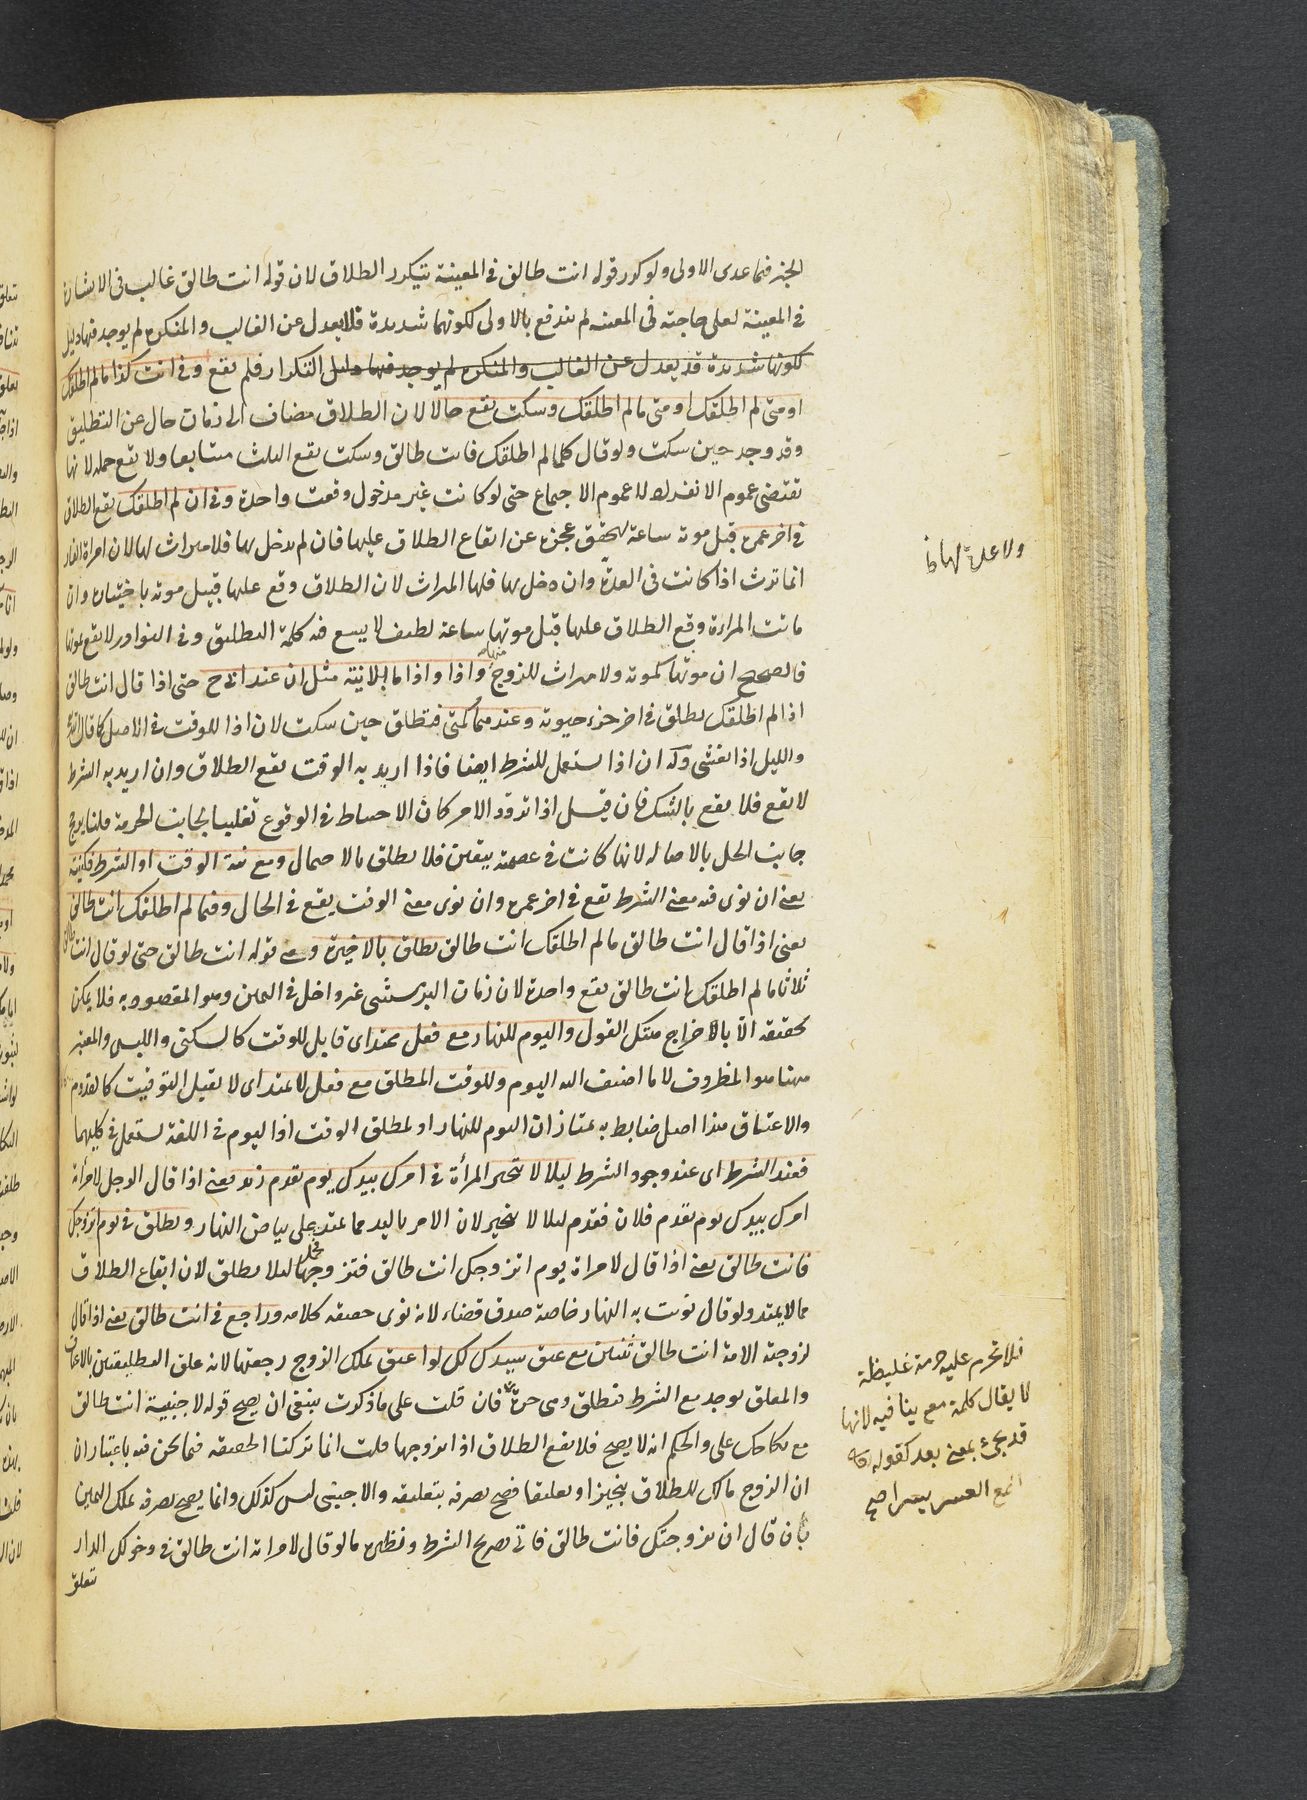 الجنز فيما عدى الاولى ولو كرر قوله انت طالق في المعينة يتكرر الطلاق لان قوله انت طالق غالب في الانشاء
في المعينة لعل حاجته في المعينه لم تندفع بالاولى لكونها شديدة فلا يعدل عن الغالب والمنكره لم يوجد فيها دليل
لكونها شديدة قد يعدل عن الغالب والمنكره لم يوجد فيها دليل التكرار فلم يقع وفي انت كذا ما لم اطلقك
او متى لم اطلقك او متى ما لم اطلقك وسكت يقع حالا لان الطلاق مضاف الى زمان خال عن التطليق
وقد وجد حين سكت ولو قال كلما لم اطلقك فانت طالق وسكت يقع الثلث متتابعا ولا يقع جمله لانها
تقتضي عموم الانفراد لا عموم الاجماع حتى لو كانت غير مدخول وقعت واحدة وفي ان لم اطلقك يقع الطلاق
في اخر عمره قبل موته ساعة لتحقق عجزه عن ايقاع الطلاق عليها فان لم يدخل بها فلا ميراث لها لان امراة الفار
انما ترث اذا كانت في العدة وان دخل بها فلها الميراث لان الطلاق وقع عليها قبيل موته باختياره وان
ماتت المراءة وقع الطلاق عليها قبل موتها ساعة لطيف لا يسع فيه كلمة التطليق وفي النوادر لا يقع بموتها
فالصحيح ان موتها كموته ولا ميراث للزوج منها واذا واذا ما بلا نية مثل ان عند ابي ح حتى اذا قال انت طالق
اذا لم اطلقك يطلق في اخر جزء حيوته وعندهما كمتى فيطلق حين سكت لان اذا للوقت في الاصل كما قال الله تع
والليل اذا يغشى وله ان اذا يستعمل للشرط ايضا فاذا اريد به الوقت يقع الطلاق وان اريد به الشرط
لا يقع فلا يقع بالشك فان قيل اذا تردد الامر كان الاحتياط في الوقوع تغليبا لجانب الحرمة قلنا يرجح
جانب الحل بالاصالة لانها كانت في عصمة بيقين فلا يطلق بالاحتمال ومع نية الوقت او الشرط فكنيته
يعني ان نوى فيه معنى الشرط يقع في اخر عمره وان نوى معنى الوقت يقع في الحال وفيما لم اطلقك انت طالق
يعني اذا قال انت طالق ما لم اطلقك انت طالق يطلق بالاخيرة وهي قوله انت طالق حتى لو قال انت طالق
ثلاثا ما لم اطلقك انت طالق يقع واحدة لان زمان البر مستثنى غير داخل في اليمين وهو المقصود به فلا يمكن
تحقيقه الا بالاخراج منكل القول واليوم للنهار مع فعل يمتد اي قابل للوقت كالسكنى واللبس والمعتبر
ههنا هو المظروف لا ما اضيف اليه اليوم وللوقت المطلق مع فعل لا يمتد اي لا يقبل التوقيت كالقدوم
والاعتاق هذا اصل ضابط به يمتاز ان اليوم للنهار او لمطلق الوقت اذ اليوم في اللغة يستعمل في كليهما
فعند الشرط اي عند وجود الشرط ليلا لا تتخير المرأة في امرك بيدك يوم يقدم زيد يعني اذا قال الرجل لامرأة
امرك بيدك يوم يقدم فلان فقدم ليلا لا يتخير لان الامر باليد مما يمتد على بياض النهار ويطلق في يوم اتزوجك
فانت طالق يعني اذا قال لامراة يوم اتزوجك انت طالق فتزوجها ليلا يطلق لان ايقاع الطلاق
مما لا يمتد ولو قال نويت به النهار خاصة صدق قضاء لانه نوى حقيقه كلامه وراجع في انت طالق يعني اذا قال
لزوجته الامة انت طالق ثنتين مع عتق سيدك لك لو اعتق يملك الزوج رجعتها لانه علق التطليقتين بالاعتاق
والمعلق يوجد مع الشرط فتطلق وهي حرة فان قلت على ما ذكرت ينبغي ان يصح قوله لاجنبية انت طالق
مع نكاحك على والحكم انه لا يصح فلا يقع الطلاق اذا تزوجها قلت انما تركنا الحقيقه فيما نحن فيه باعتبار ان
ان الزوج مالك للطلاق تنجيزا وتعليقا فصح تصرفه بتعليقه والاجنبي ليس كذلك وانما يصح تصرفه بملك اليمين
بان قال ان تزوجتك فانت طالق فاتى تصريح الشرط ونظيره ما لو قال لامراته انت طالق في دخولك الدار
تعلق
ولا عدة لها
فلا تحرم عليه حرمة غليظة
لا يقال كلمة مع ينافيه لانها
قد تجئ بمعنى بعد كقوله تع
ان مع العسر يسرا صح